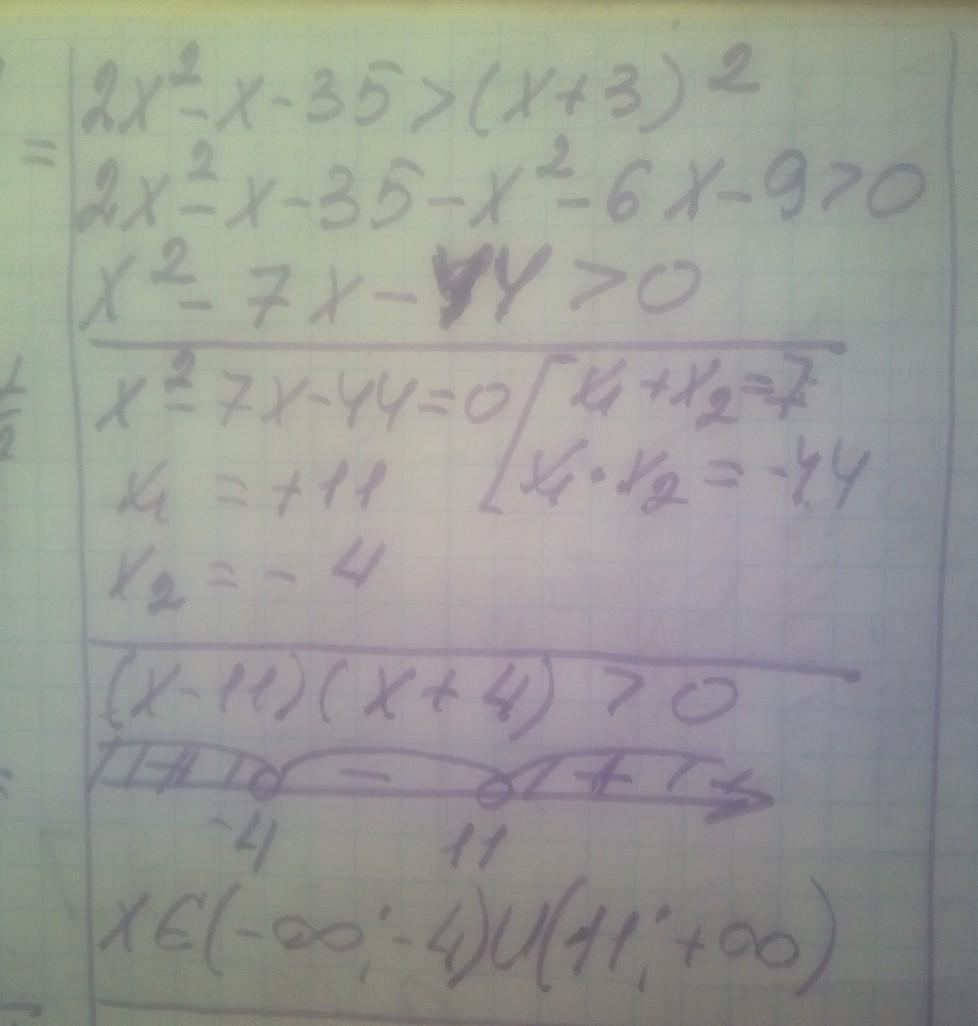 2x²-x-35>(x+3)²
=
2x²-x-35-x²-6x-9>0
x²-7x-44>0
x²-7x-44=0 [x₁+x₂=7
x₁=+11 x₁·x₂=-44
x₂=-4
(x-11)(x+4)>0
+ - + x
-4 11
x∈(-∞;-4)∪(11;+∞)